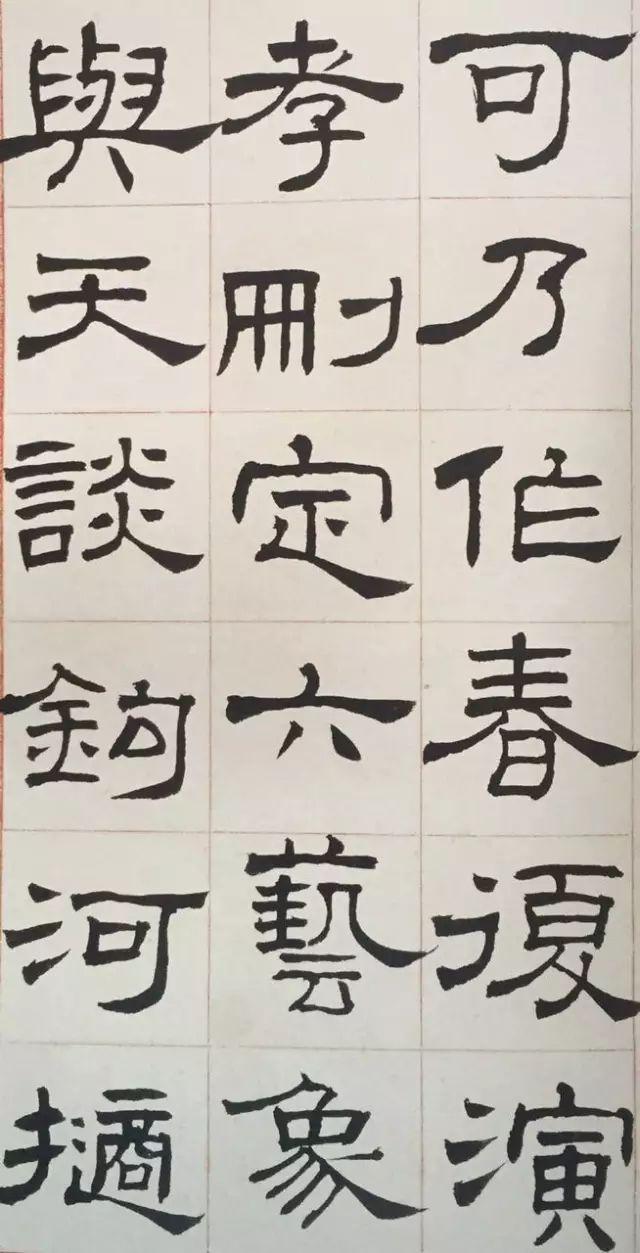 可乃作春復演
孝刪定六藝象
與天談鉤河擿